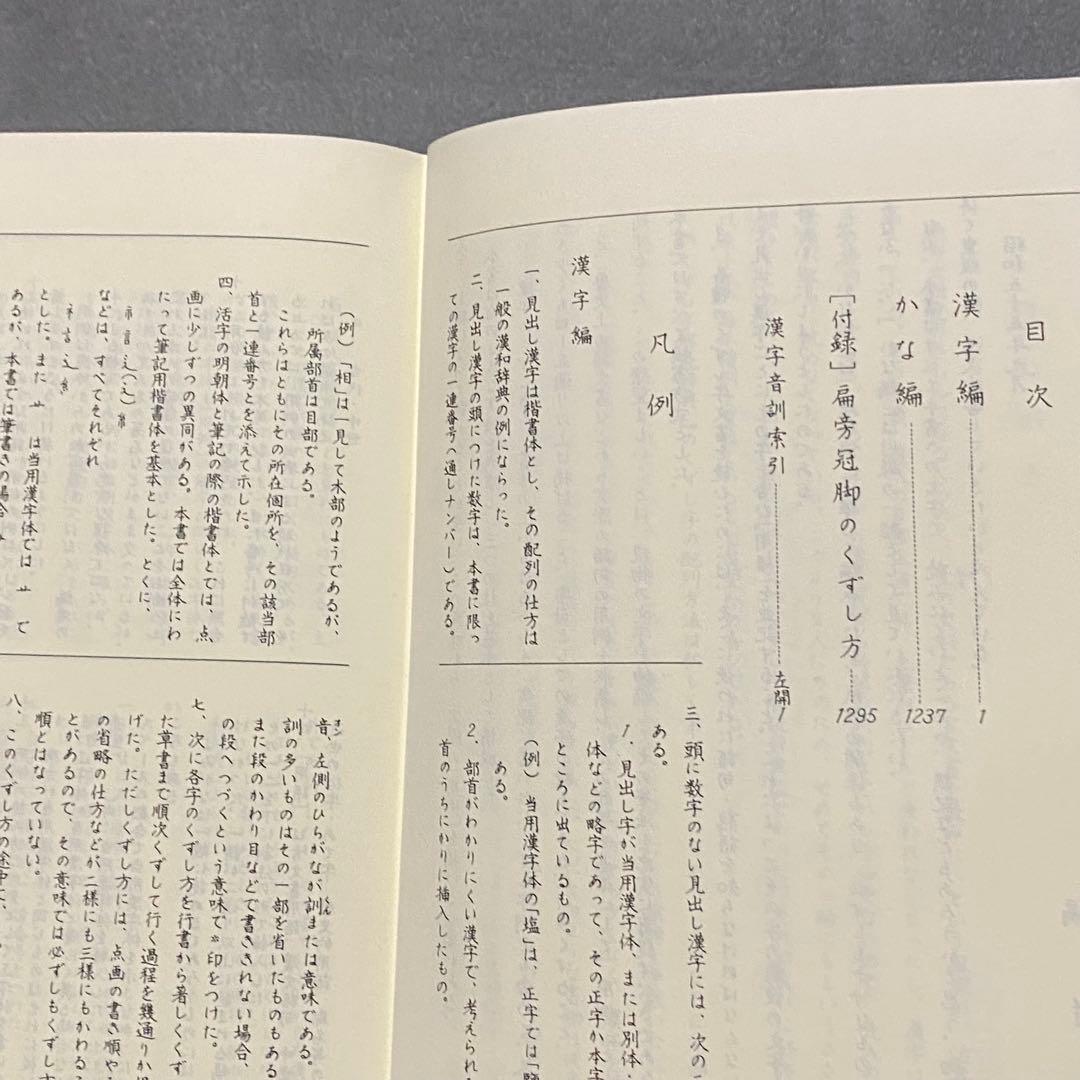 目次
漢字編 1
かな編 1237
［付録］扁旁冠脚のくずし方 1295
漢字音訓索引 左開 1
凡例
漢字編
一、見出し漢字は楷書体とし、その配列の仕方は
一般の漢和辞典の例にならった。
二、見出し漢字の頭につけた数字は、本書に限っ
ての漢字の一連番号（通しナンバー）である。
三、頭に数字のない見出し漢字には、次の
ある。
1、見出し字が当用漢字体、または別体・
体などの略字であって、その正字か本字
ところに出ているもの。
（例）当用漢字体の「塩」は、正字では「
ある。
2、部首がわかりにくい漢字で、考えられる
首のうちにかりに挿入したもの。
（例）「相」は一見して木部のようであるが、
所属部首は目部である。
これらはともにその所在個所を、その該当部
首と一連番号とを添えて示した。
四、活字の明朝体と筆記の際の楷書体とでは、点
画に少しずつの異同がある。本書では全体にわ
たって筆記用楷書体を基本とした。とくに、
などは、すべてそれぞれ
とした。また 亠 は当用漢字体では 亠 で
あるが、本書では筆書きの場合
音、左側のひらがなが訓または意味である。
訓の多いものはその一部を省いたものもある
また段のかわり目などで書ききれない場合、
の段へつづくという意味で※印をつけた。
七、次に各字のくずし方を行書から著しくくず
た草書まで順次くずして行く過程を幾通りか
げた。ただしくずし方には、点画の書き順や
の省略の仕方などが二様にも三様にもかわる
とがあるので、その意味では必ずしもくずし
順とはなっていない。
八、このくずし方の途中